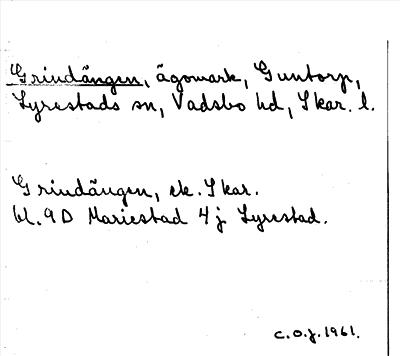 Grindängen, ägomark, Guntorp,
Lyrestads sn, Vadsbo hd, Skar. l.
Grindängen, ek. Skar.
bl. 9D Mariestad 4j Lyrestad.
C.O.J. 1961.